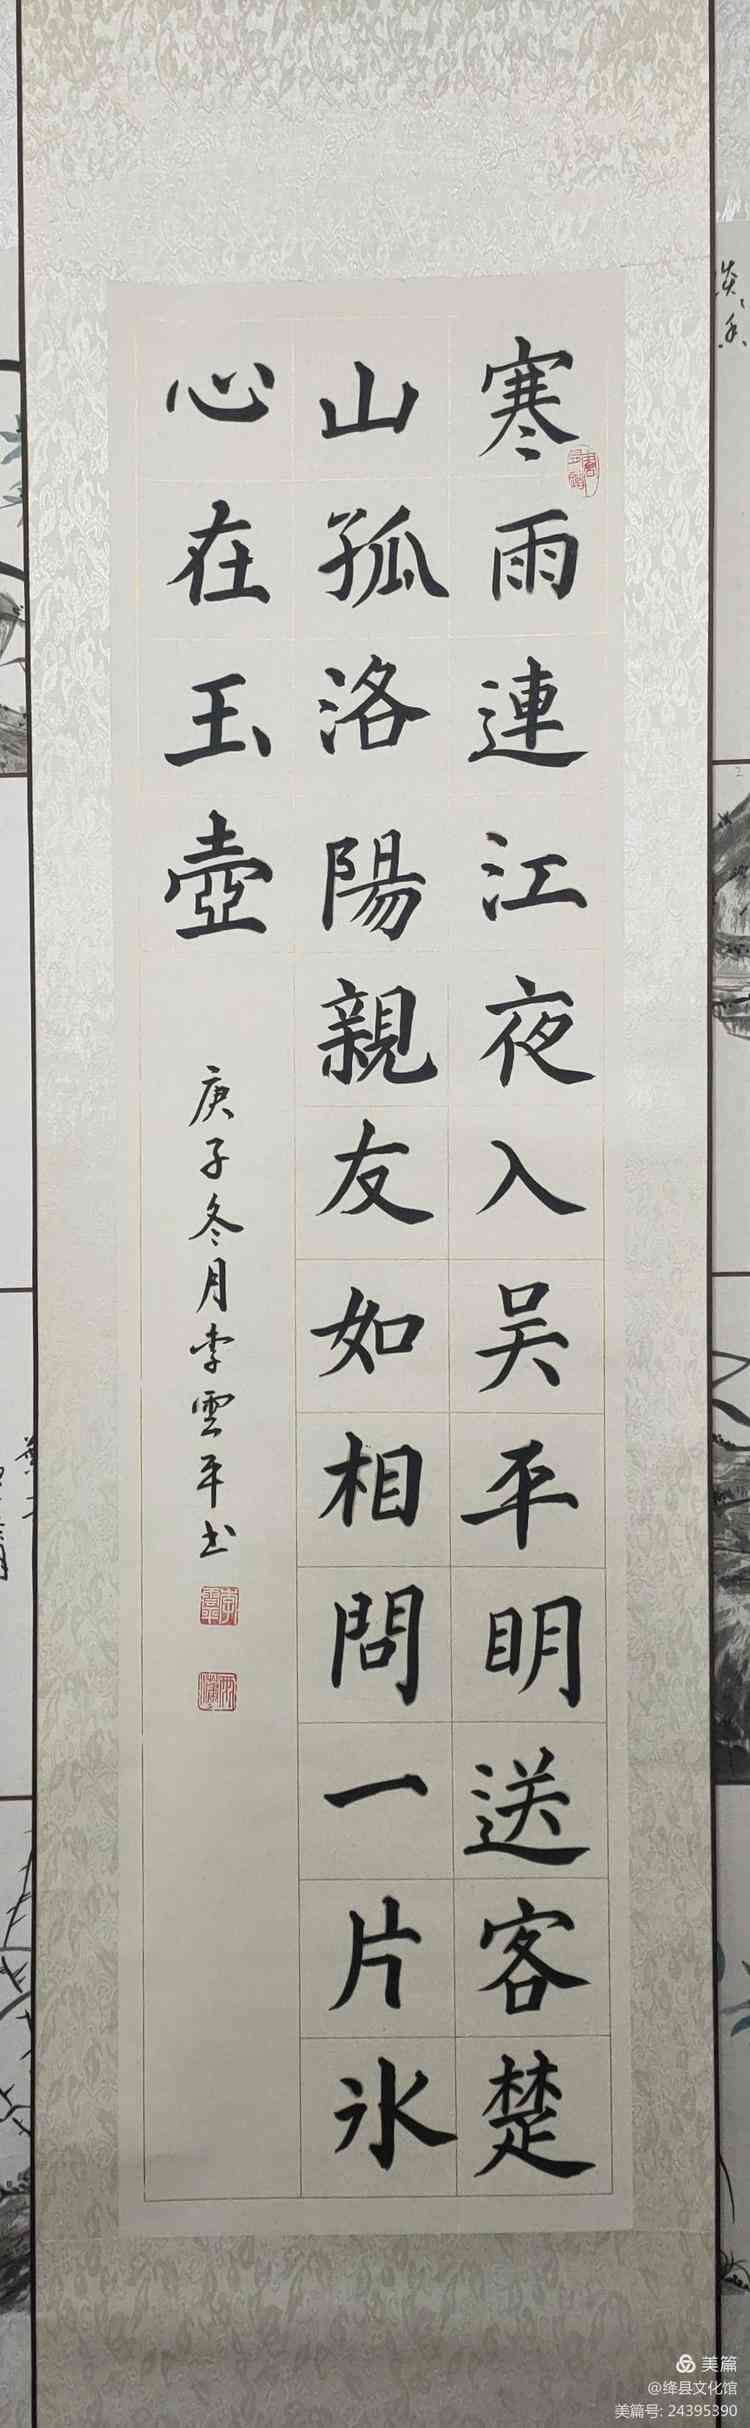 寒雨連江夜入吴平明送客楚
山孤洛陽親友如相問一片氷
心在玉壺
庚子冬月李雲平书
美篇
@绛县文化馆
美篇号: 24395390